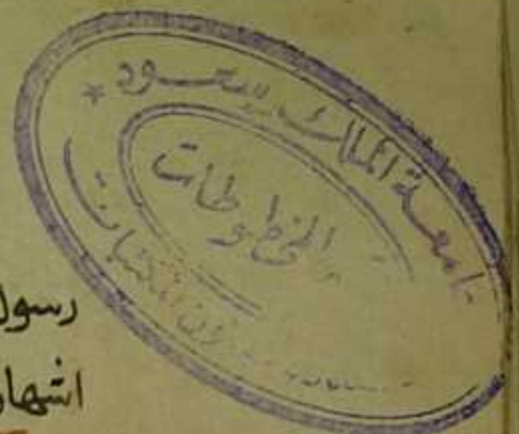 جامعة الملك سعود *
المخطوطات
شؤون المكتبات
رسول
اشهار